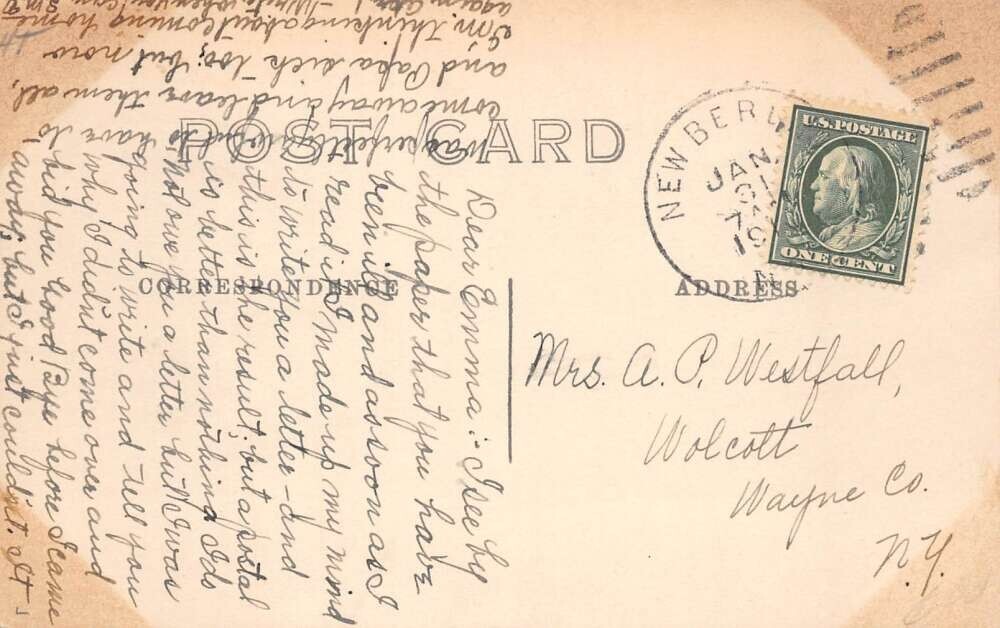 POST CARD
CORRESPONDENCE
ADDRESS
NEW BERL
JAN.
31
7
19
N
U.S. POSTAGE
ONE CENT
Mrs. A. P. Westfall,
Wolcott
Wayne Co.
N.Y.
Dear Emma:- I see by
the paper that you have
been ill and as soon as I
read it I made up my mind
to write you a letter - and
this is the result, but a postal
is better than nothing. I do
not owe you a letter but I was
going to write and tell you
why I didn't come over and
bid you Good Bye before I came
away, but I just couldn't. It
was perfectly awful to have to
come away and leave them all,
and Papa sick too; but now
I'm thinking about coming home
again Write when you can